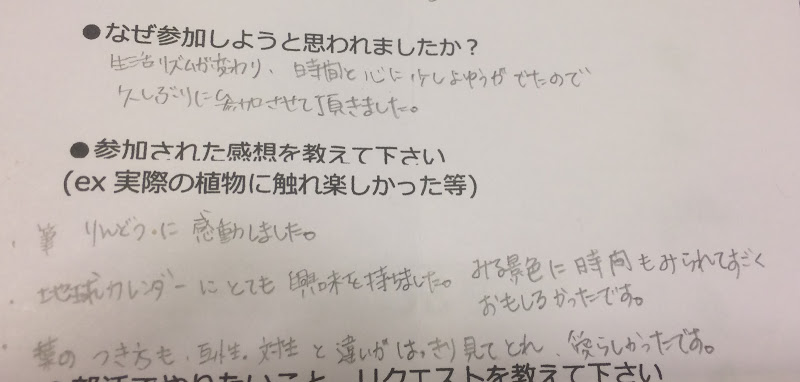 ●なぜ参加しようと思われましたか？
生活リズムが変わり、時間と心に少しよゆうがでたので
久しぶりに参加させて頂きました。
●参加された感想を教えて下さい
(ex 実際の植物に触れ楽しかった等)
・筆りんどうに感動しました。
・地球カレンダーにとても興味を持ちました。みる景色に時間もみられてすごく
おもしろかったです。
・葉のつき方も、互性、対生と違いがはっきり見てとれ、愛らしかったです。
●部活でやりたいこと、リクエストを教えて下さい